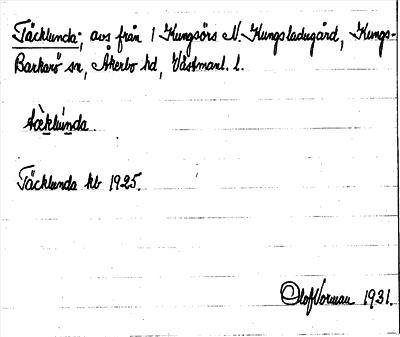 Täcklunda; avs från 1 Kungsörs N. Kungsladugård, Kungs-
Barkarö sn, Åkerbo hd, Västmanl. l.
tæ̀klùnda.
Täcklunda kb 1925.
Olof Norman 1931.